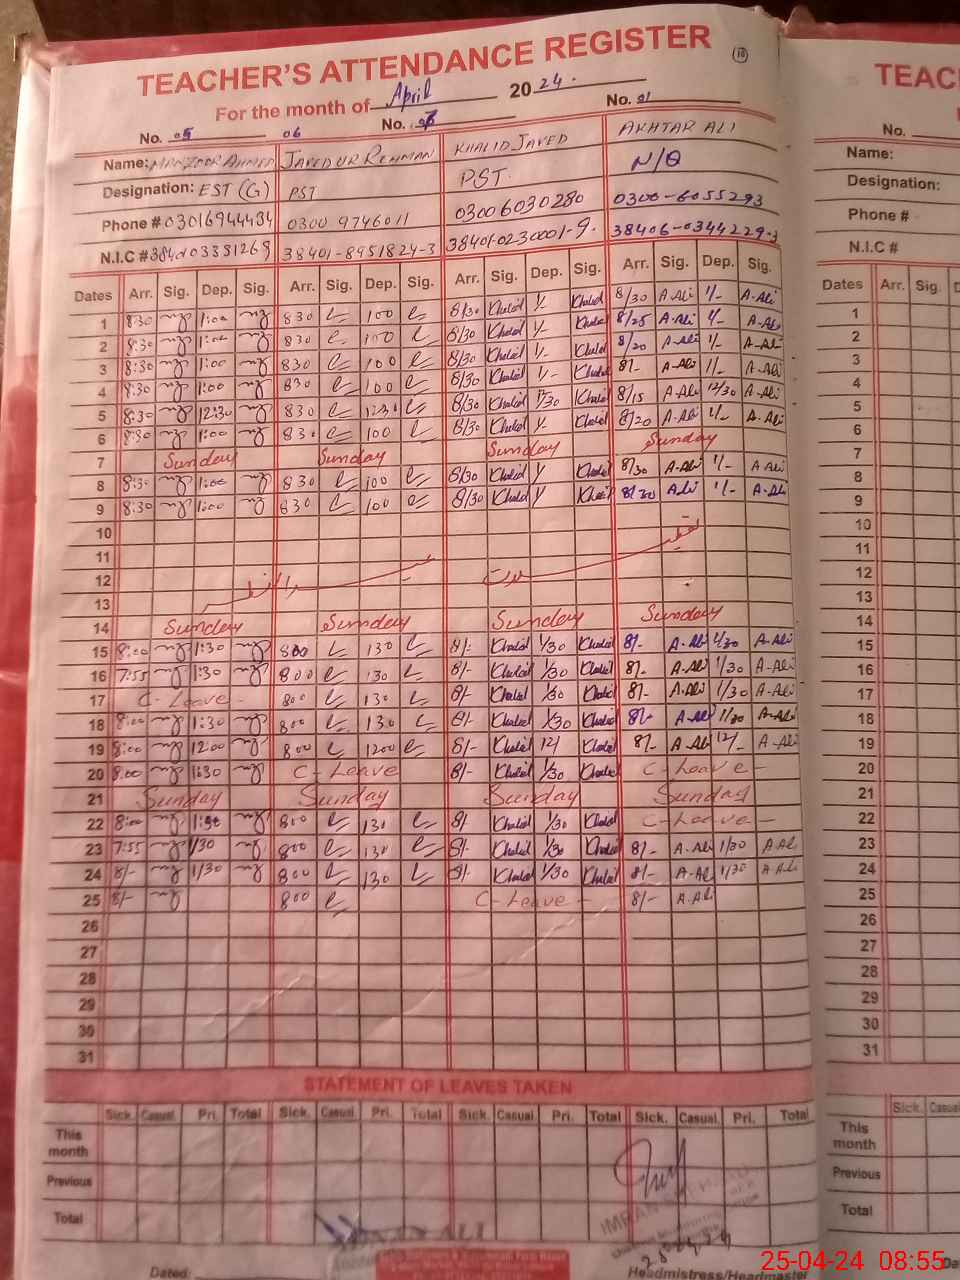 TEACHER'S ATTENDANCE REGISTER
For the month of April 2024.
No. 05 06 No. No. 01
Name: MANZOOR AHMED JAVED UR REHMAN KHALID JAVED AKHTAR ALI
Designation: EST (G) PST PST. N/Q
Phone # 03016944434 0300 9746011 03006030280 0300-6055293
N.I.C # 38401-8951824-3 38401-0230001-9. 38406-0344229-3
Dates Arr. Sig. Dep. Sig. Arr. Sig. Dep. Sig. Arr. Sig. Dep. Sig. Arr. Sig. Dep. Sig.
1 8:30 1:00 830 100 8/30 Khalid 1/- Khalid 8/30 A-Ali 1/- A-Ali
2 8:30 1:00 830 100 8/30 Khalid 1/- Khalid 8/25 A-Ali 1/- A-Ali
3 8:30 1:00 830 100 8/30 Khalid 1/- Khalid 8/20 A-Ali 1/- A-Ali
4 8:30 1:00 830 100 8/30 Khalid 1/- Khalid 8/- A-Ali 1/- A-Ali
5 8:30 12:30 830 1230 8/30 Khalid Khalid 8/15 A-Ali 12/30 A-Ali
6 8:30 1:00 830 100 8/30 Khalid 1/- Khalid 8/20 A-Ali 1/- A-Ali
7 Sunday Sunday Sunday Sunday
8 8:30 1:00 830 100 8/30 Khalid 1/ Khalid 8/30 A-Ali 1/- A-Ali
9 8:30 1:00 830 100 8/30 Khalid 1/ Khalid 8/30 A-Ali 1/- A-Ali
10
11
12
13
14 Sunday Sunday Sunday Sunday
15 8:00 1:30 800 130 8/- Khalid 1/30 Khalid 8/- A-Ali 1/30 A-Ali
16 7:55 1:30 800 130 8/- Khalid 1/30 Khalid 8/- A-Ali 1/30 A-Ali
17 C-Leave 800 130 8/- Khalid 1/30 Khalid 8/- A-Ali 1/30 A-Ali
18 8:00 1:30 800 130 8/- Khalid 1/30 Khalid 8/- A-Ali 1/30 A-Ali
19 8:00 12:00 800 1200 8/- Khalid 12/ Khalid 8/- A-Ali 12/- A-Ali
20 8:00 1:30 C-Leave 8/- Khalid 1/30 Khalid C-Leave-
21 Sunday Sunday Sunday Sunday
22 8:00 1:30 800 130 8/- Khalid 1/30 Khalid C-Leave-
23 7:55 1/30 800 130 8/- Khalid 1/30 Khalid 8/- A-Ali 1/30 A-Ali
24 8/- 1/30 800 130 8/- Khalid 1/30 Khalid 8/- A-Ali 1/30 A-Ali
25 8/- 800 C-Leave- 8/- A-Ali
26
27
28
29
30
31
STATEMENT OF LEAVES TAKEN
Sick. Casual. Pri. Total Sick. Casual. Pri. Total Sick. Casual Pri. Total Sick. Casual. Pri. Total
This month
Previous
Total
Dated: Headmistress/Headmaster
TEACH
No.
Name:
Designation:
Phone #
N.I.C #
Dates Arr. Sig.
1
2
3
4
5
6
7
8
9
10
11
12
13
14
15
16
17
18
19
20
21
22
23
24
25
26
27
28
29
30
31
Sick. Casual
This month
Previous
Total
25-04-24 08:55